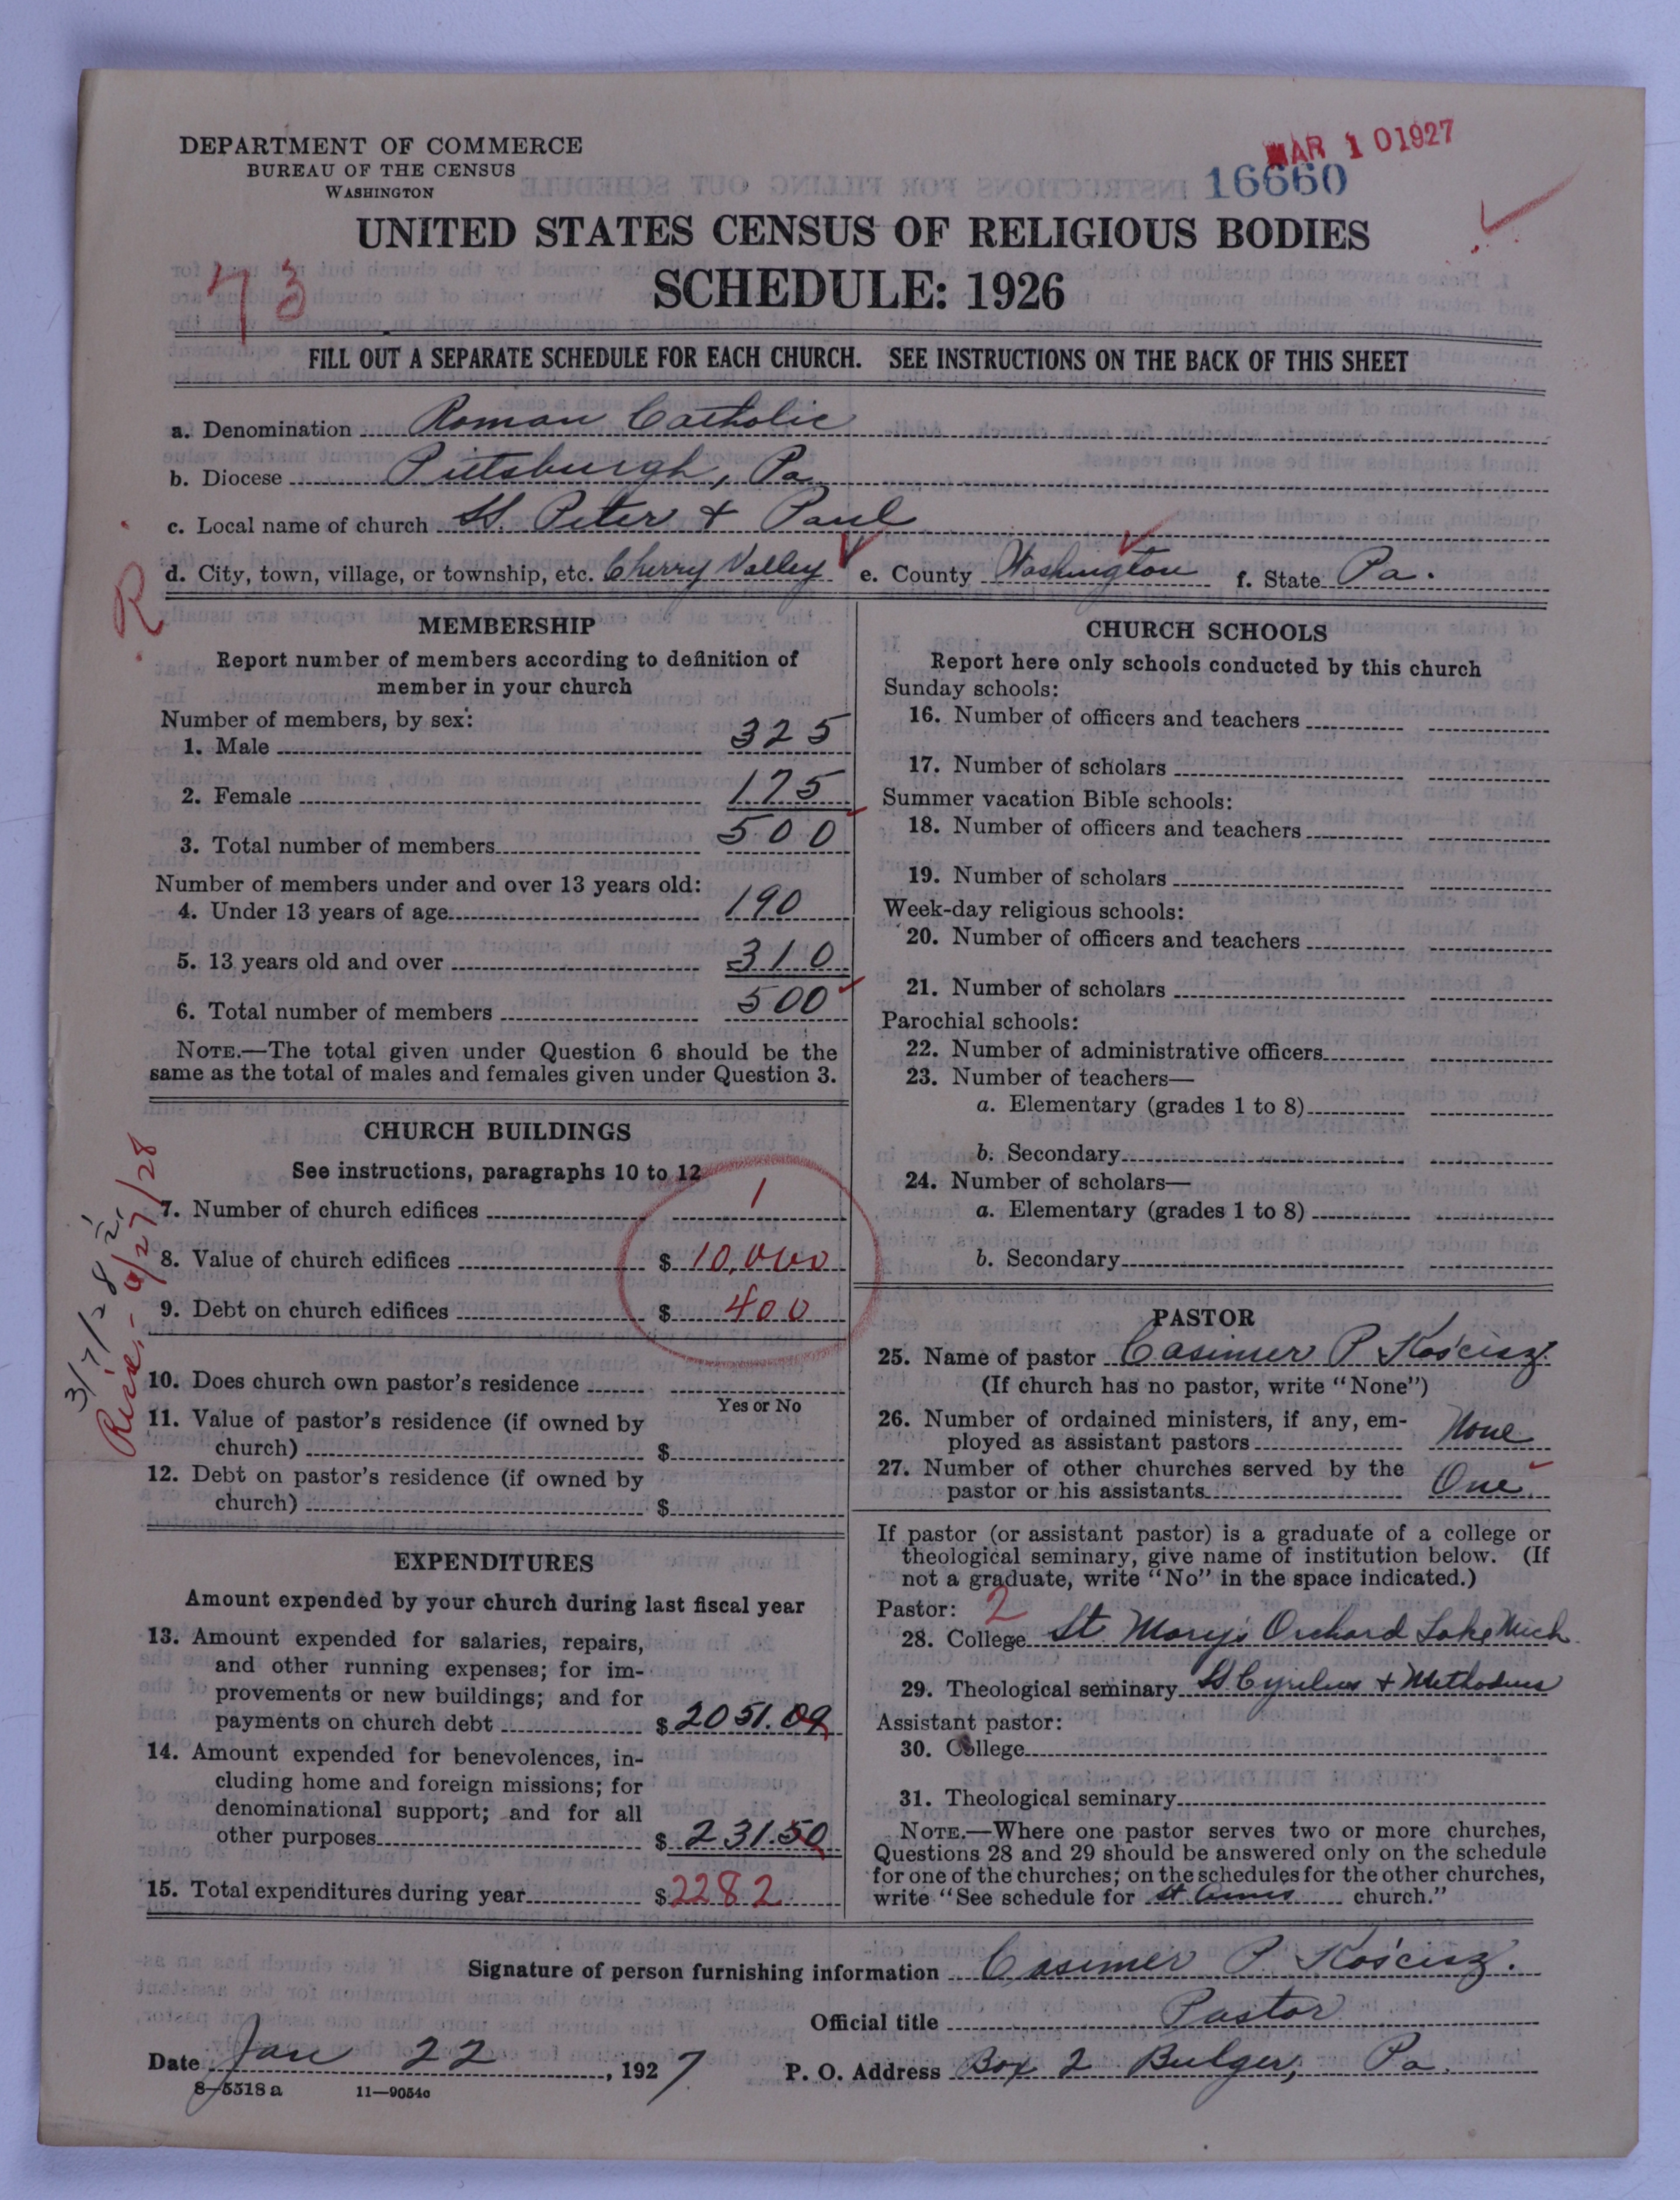 DEPARTMENT OF COMMERCE
BUREAU OF THE CENSUS
WASHINGTON
MAR 1 01927
16660
UNITED STATES CENSUS OF RELIGIOUS BODIES
SCHEDULE: 1926
73
FILL OUT A SEPARATE SCHEDULE FOR EACH CHURCH. SEE INSTRUCTIONS ON THE BACK OF THIS SHEET
a. Denomination Roman Catholic
b. Diocese Pittsburgh, Pa
c. Local name of church St. Peter & Paul
R d. City, town, village, or township, etc. Cherry Valley e. County Washington f. State Pa.
MEMBERSHIP
Report number of members according to definition of
member in your church
Number of members, by sex:
1. Male 325
2. Female 175
3. Total number of members 500
Number of members under and over 13 years old:
4. Under 13 years of age 190
5. 13 years old and over 310
6. Total number of members 500
NOTE.—The total given under Question 6 should be the
same as the total of males and females given under Question 3.
CHURCH BUILDINGS
See instructions, paragraphs 10 to 12
7. Number of church edifices 1
8. Value of church edifices $ 10,000
9. Debt on church edifices $ 400
10. Does church own pastor's residence
Yes or No
11. Value of pastor's residence (if owned by
church) $
12. Debt on pastor's residence (if owned by
church) $
3/7/28
EXPENDITURES
Amount expended by your church during last fiscal year
13. Amount expended for salaries, repairs,
and other running expenses; for im-
provements or new buildings; and for
payments on church debt $ 2051.09
14. Amount expended for benevolences, in-
cluding home and foreign missions; for
denominational support; and for all
other purposes $ 231.50
15. Total expenditures during year $ 2282
CHURCH SCHOOLS
Report here only schools conducted by this church
Sunday schools:
16. Number of officers and teachers
17. Number of scholars
Summer vacation Bible schools:
18. Number of officers and teachers
19. Number of scholars
Week-day religious schools:
20. Number of officers and teachers
21. Number of scholars
Parochial schools:
22. Number of administrative officers
23. Number of teachers—
a. Elementary (grades 1 to 8)
b. Secondary
24. Number of scholars—
a. Elementary (grades 1 to 8)
b. Secondary
PASTOR
25. Name of pastor Casimer P Kościsz
(If church has no pastor, write "None")
26. Number of ordained ministers, if any, em-
ployed as assistant pastors None
27. Number of other churches served by the
pastor or his assistants One
If pastor (or assistant pastor) is a graduate of a college or
theological seminary, give name of institution below. (If
not a graduate, write "No" in the space indicated.)
Pastor: 2
28. College St. Mary's Orchard Lake Mich
29. Theological seminary St Cyrilus & Methodius
Assistant pastor:
30. College
31. Theological seminary
NOTE.—Where one pastor serves two or more churches,
Questions 28 and 29 should be answered only on the schedule
for one of the churches; on the schedules for the other churches,
write "See schedule for St. Annes church."
Signature of person furnishing information Casimer P. Kościsz.
Official title Pastor
Date Jan 22, 1927 P. O. Address Box 2 Bulger, Pa.
8-5518 a 11—9054c